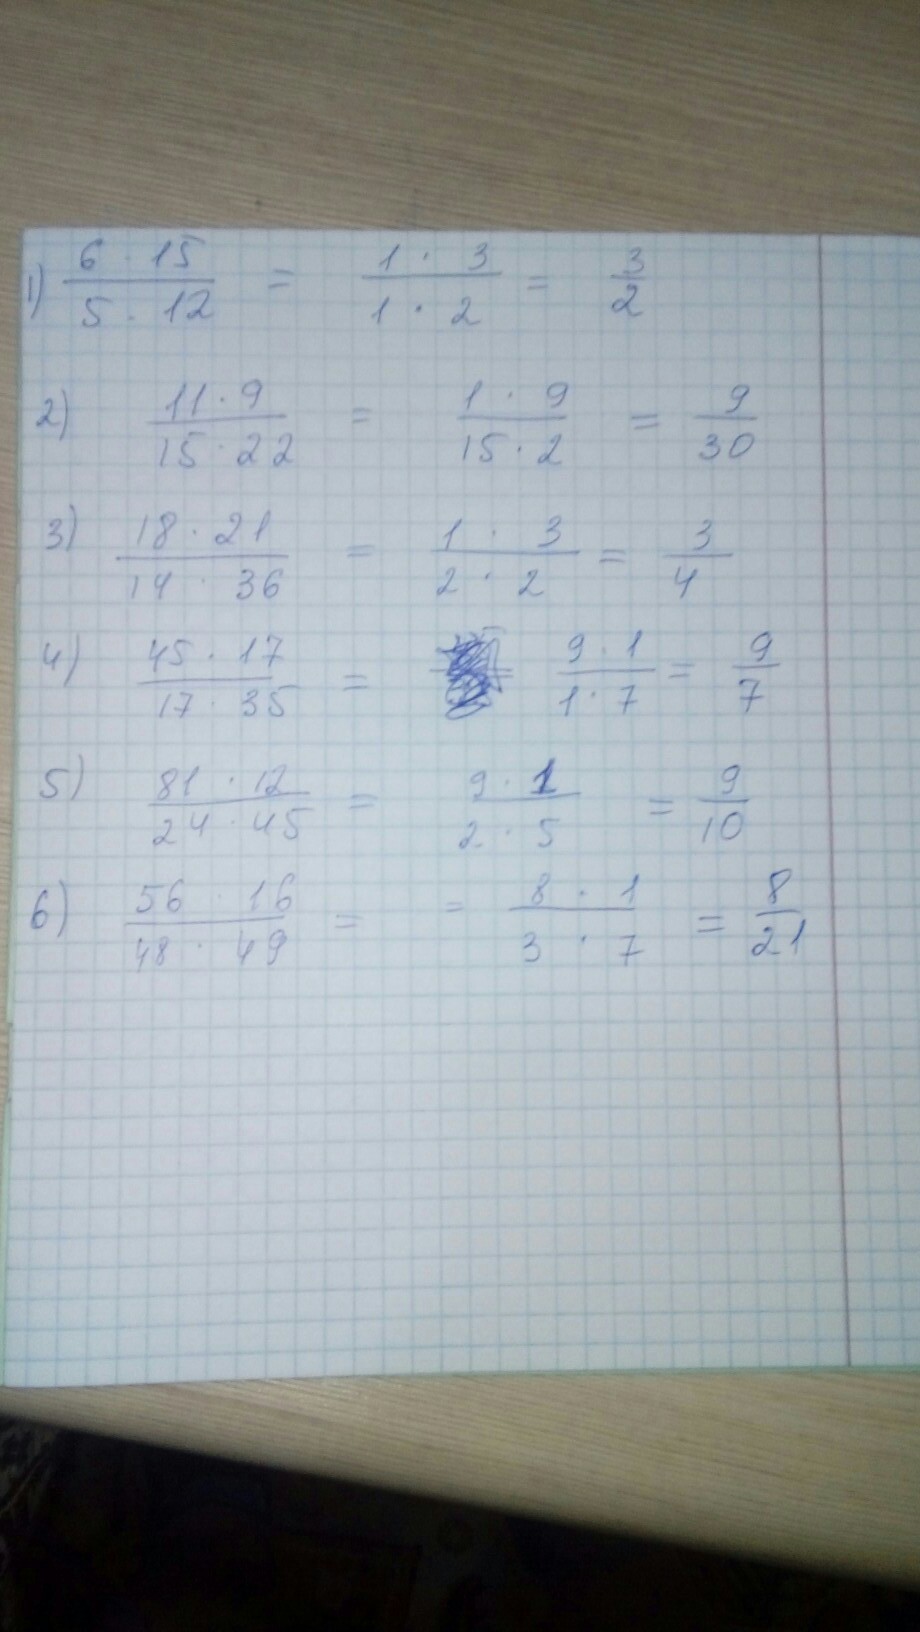 1) 6 · 15 / 5 · 12 = 1 · 3 / 1 · 2 = 3/2
2) 11 · 9 / 15 · 22 = 1 · 9 / 15 · 2 = 9/30
3) 18 · 21 / 14 · 36 = 1 · 3 / 2 · 2 = 3/4
4) 45 · 17 / 17 · 35 = 9 · 1 / 1 · 7 = 9/7
5) 81 · 12 / 24 · 45 = 9 · 1 / 2 · 5 = 9/10
6) 56 · 16 / 48 · 49 = = 8 · 1 / 3 · 7 = 8/21